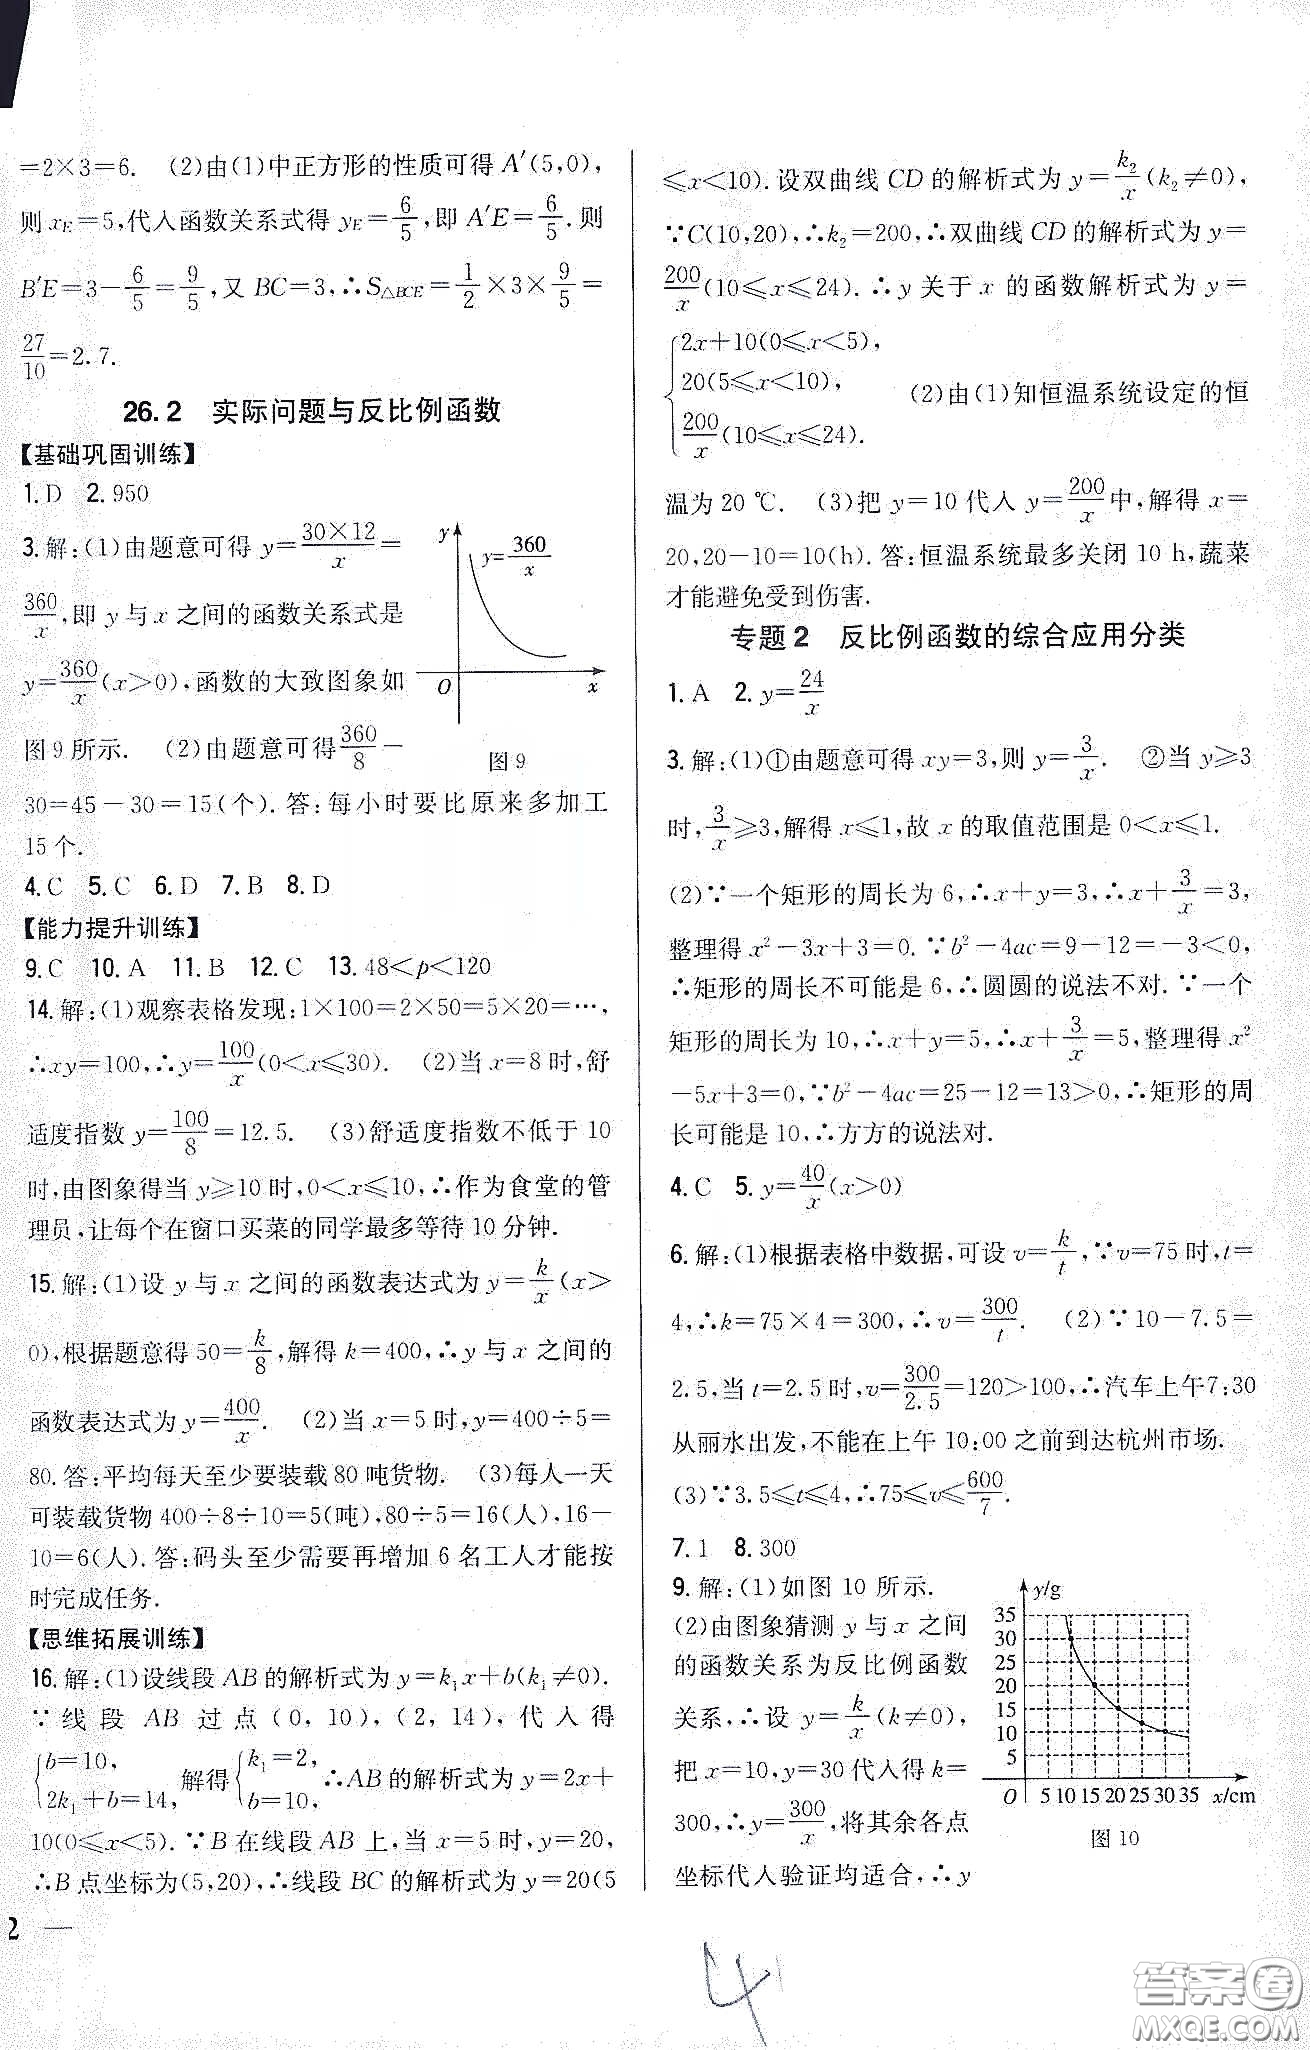 =2×3=6. (2)由(1)中正方形的性质可得 A′(5,0),
则 x_E=5,代入函数关系式得 y_E=6/5,即 A′E=6/5.则
B′E=3-6/5=9/5,又 BC=3,∴S_△BCE=1/2×3×9/5=
27/10=2.7.
26.2 实际问题与反比例函数
【基础巩固训练】
1.D 2.950
3.解:(1)由题意可得 y=30×12/x=
360/x,即 y 与 x 之间的函数关系式是
y=360/x(x>0),函数的大致图象如
图 9 所示. (2)由题意可得360/8-
y
y=360/x
O
x
图 9
30=45-30=15(个).答:每小时要比原来多加工
15 个.
4.C 5.C 6.D 7.B 8.D
【能力提升训练】
9.C 10.A 11.B 12.C 13.48<p<120
14.解:(1)观察表格发现:1×100=2×50=5×20=…,
∴xy=100,∴y=100/x(0<x≤30). (2)当 x=8 时,舒
适度指数 y=100/8=12.5. (3)舒适度指数不低于 10
时,由图象得当 y≥10 时,0<x≤10,∴作为食堂的管
理员,让每个在窗口买菜的同学最多等待 10 分钟.
15.解:(1)设 y 与 x 之间的函数表达式为 y=k/x(x>
0),根据题意得 50=k/8,解得 k=400,∴y 与 x 之间的
函数表达式为 y=400/x. (2)当 x=5 时,y=400÷5=
80.答:平均每天至少要装载 80 吨货物. (3)每人一天
可装载货物 400÷8÷10=5(吨),80÷5=16(人),16-
10=6(人).答:码头至少需要再增加 6 名工人才能按
时完成任务.
【思维拓展训练】
16.解:(1)设线段 AB 的解析式为 y=k₁x+b(k₁≠0).
∵线段 AB 过点(0,10),(2,14),代入得
{b=10, 2k₁+b=14, 解得{k₁=2, b=10, ∴AB 的解析式为 y=2x+
10(0≤x<5).∵B 在线段 AB 上,当 x=5 时,y=20,
∴B 点坐标为(5,20),∴线段 BC 的解析式为 y=20(5
2 —
≤x<10).设双曲线 CD 的解析式为 y=k₂/x(k₂≠0),
∵C(10,20),∴k₂=200,∴双曲线 CD 的解析式为 y=
200/x(10≤x≤24).∴y 关于 x 的函数解析式为 y=
{2x+10(0≤x<5),
20(5≤x<10), (2)由(1)知恒温系统设定的恒
200/x(10≤x≤24).
温为 20 ℃. (3)把 y=10 代入 y=200/x中,解得 x=
20,20-10=10(h).答:恒温系统最多关闭 10 h,蔬菜
才能避免受到伤害.
专题 2 反比例函数的综合应用分类
1.A 2.y=24/x
3.解:(1)①由题意可得 xy=3,则 y=3/x. ②当 y≥3
时,3/x≥3,解得 x≤1,故 x 的取值范围是 0<x≤1.
(2)∵一个矩形的周长为 6,∴x+y=3,∴x+3/x=3,
整理得 x²-3x+3=0.∵b²-4ac=9-12=-3<0,
∴矩形的周长不可能是 6,∴圆圆的说法不对.∵一个
矩形的周长为 10,∴x+y=5,∴x+3/x=5,整理得 x²
-5x+3=0,∵b²-4ac=25-12=13>0,∴矩形的周
长可能是 10,∴方方的说法对.
4.C 5.y=40/x(x>0)
6.解:(1)根据表格中数据,可设 v=k/t,∵v=75 时,t=
4,∴k=75×4=300,∴v=300/t. (2)∵10-7.5=
2.5,当 t=2.5 时,v=300/2.5=120>100,∴汽车上午 7:30
从丽水出发,不能在上午 10:00 之前到达杭州市场.
(3)∵3.5≤t≤4,∴75≤v≤600/7.
7.1 8.300
9.解:(1)如图 10 所示.
(2)由图象猜测 y 与 x 之间
的函数关系为反比例函数
关系,∴设 y=k/x(k≠0),
把 x=10,y=30 代入得 k=
300,∴y=300/x,将其余各点
坐标代入验证均适合,∴y
y/g
35
30
25
20
15
10
5
O 5 10 15 20 25 30 35 x/cm
图 10
4
答案圈
MXQE.COM